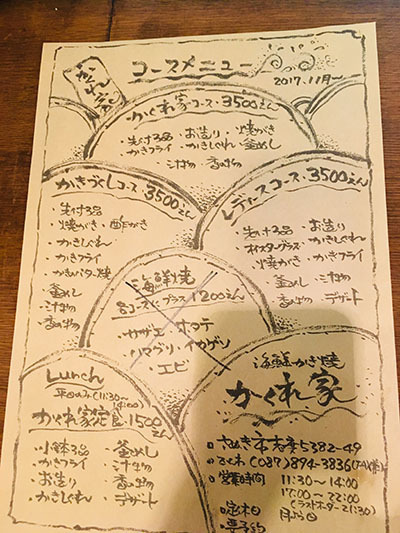 かくれ家
コースメニュー
2017.11月〜
かくれ家コース・3500えん
・先付3品 ・お造り ・焼がき
・かきフライ ・かきしぐれ ・釜めし
・汁物 ・香の物
かきづくしコース 3500えん
・先付3品
・焼がき ・酢がき
・かきしぐれ
・かきフライ
・かきバター焼
・釜めし
・汁物
・香の物
レディースコース・3500えん
・先付3品 ・お造り
・オイスターグラス ・かきしぐれ
・焼がき ・かきフライ
・釜めし ・汁物
・香の物 ・デザート
海鮮焼
各コースにプラス 1200えん
・サザエ ・ホタテ
・ヒオウギ ・イカゲソ
・エビ
Lunch
平日のみ(11:30〜14:00)
かくれ家定食 1500えん
・小鉢3品 ・釜めし
・かきフライ ・汁物
・お造り ・香の物
・かきしぐれ ・デザート
海鮮かき焼
かくれ家
さぬき市志度5382-49
でんわ (087)894-3836
営業時間 11:30〜14:00
17:00〜22:00
(ラストオーダー21:30)
定休日
要予約